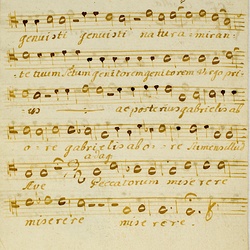 genuisti genuisti natura miran=
te tuum Sctum genitorem genitorem Virgo pri=
us ac posterius gabrielis ab
o re gabrielis ab o re Sumens illud
Ave Peccatorum miserere
miserere miserere.